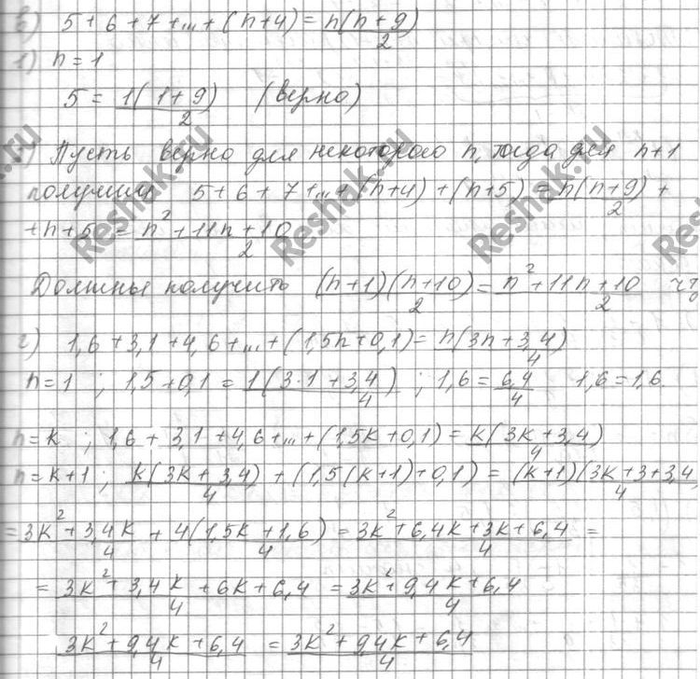 в) 5 + 6 + 7 + ... + (n+4) = n(n+9)/2
1) n = 1
5 = 1(1+9)/2 (верно)
Пусть верно для некоторого n, тогда для n+1
получим 5 + 6 + 7 + ... + (n+4) + (n+5) = n(n+9)/2 +
+ n+5 = n² + 11n + 10/2
Должны получить (n+1)(n+10)/2 = n² + 11n + 10/2 чт
г) 1,6 + 3,1 + 4,6 + ... + (1,5n + 0,1) = n(3n + 3,4)/4
n = 1 ; 1,5 + 0,1 = 1(3·1 + 3,4)/4 ; 1,6 = 6,4/4 1,6 = 1,6
n = k ; 1,6 + 3,1 + 4,6 + ... + (1,5k + 0,1) = k(3k + 3,4)/4
n = k+1 ; k(3k + 3,4)/4 + (1,5(k+1) + 0,1) = (k+1)(3k + 3 + 3,4/4
= 3k² + 3,4k/4 + 4(1,5k + 1,6)/4 = 3k² + 6,4k + 3k + 6,4/4 =
= 3k² + 3,4k + 6k + 6,4/4 = 3k² + 9,4k + 6,4/4
3k² + 9,4k + 6,4/4 = 3k² + 9,4k + 6,4/4
Reshak.ru
Reshak.ru
Reshak.ru